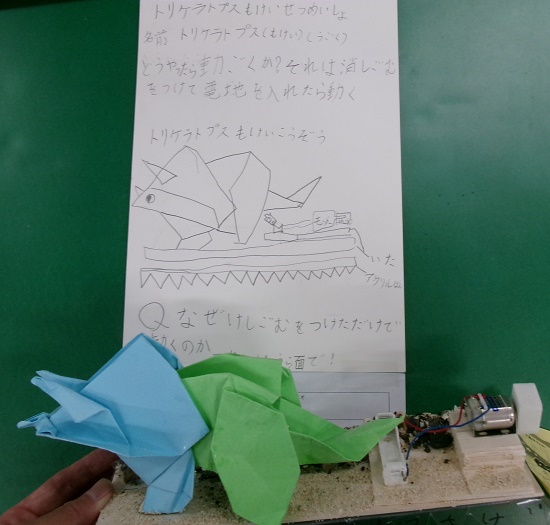 トリケラトプスもけいせつめいしょ
名前 トリケラトプス(もけい)(うごく)
どうやったら動ごくか?それは消しごむ
をつけて電地を入れたら動く
トリケラトプスもけいこうぞう
いた
Qなぜけしごむをつけただけで
くのか
面で!